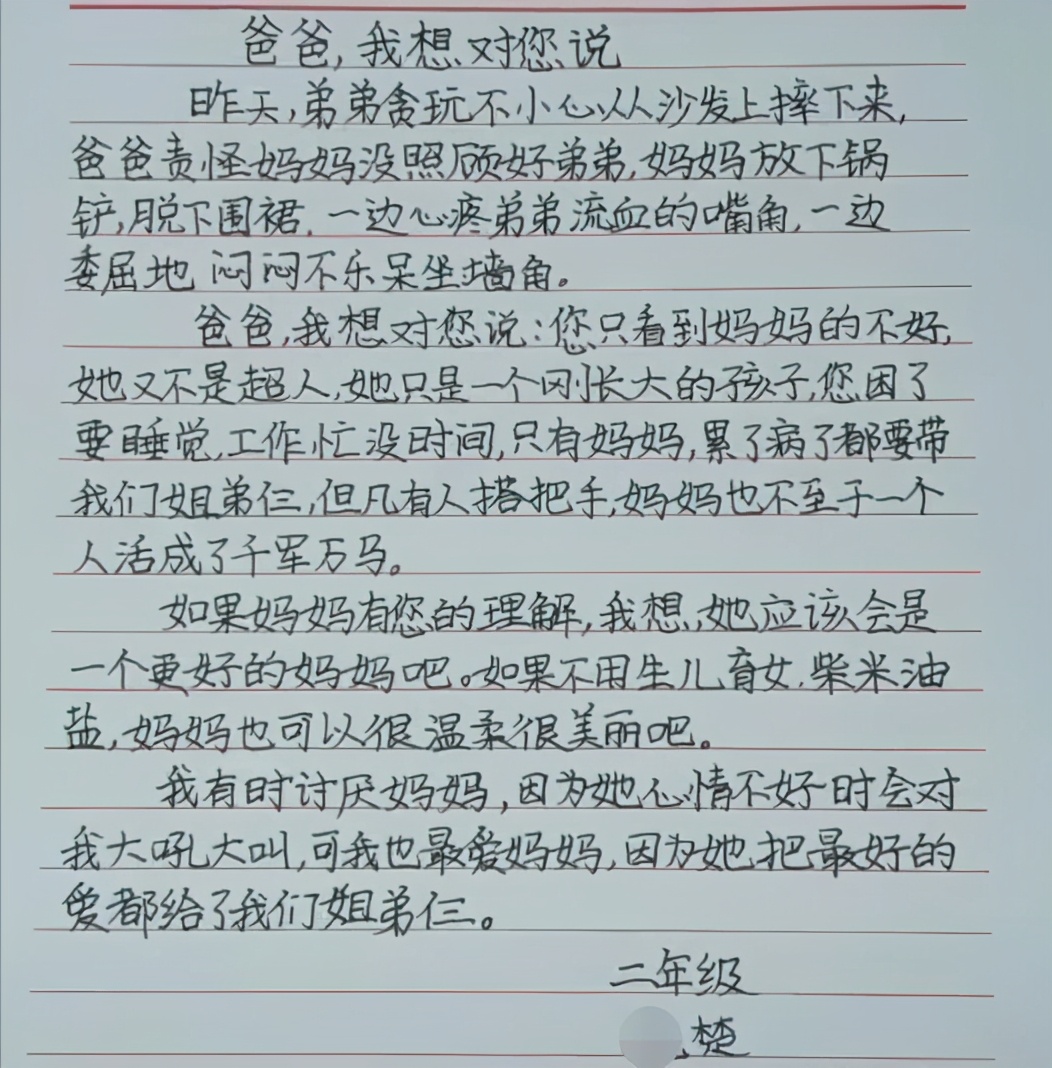 爸爸,我想对您说
昨天,弟弟贪玩不小心从沙发上摔下来,
爸爸责怪妈妈没照顾好弟弟,妈妈放下锅
铲,脱下围裙,一边心疼弟弟流血的嘴角,一边
委屈地闷闷不乐呆坐墙角。
爸爸,我想对您说:您只看到妈妈的不好,
她又不是超人,她只是一个刚长大的孩子,您困了
要睡觉,工作忙没时间,只有妈妈,累了病了都要带
我们姐弟仨,但凡有人搭把手,妈妈也不至于一个
人活成了千军万马。
如果妈妈有您的理解,我想,她应该会是
一个更好的妈妈吧。如果不用生儿育女,柴米油
盐,妈妈也可以很温柔很美丽吧。
我有时讨厌妈妈,因为她心情不好时会对
我大吼大叫,可我也最爱妈妈,因为她把最好的
爱都给了我们姐弟仨。
二年级
楚